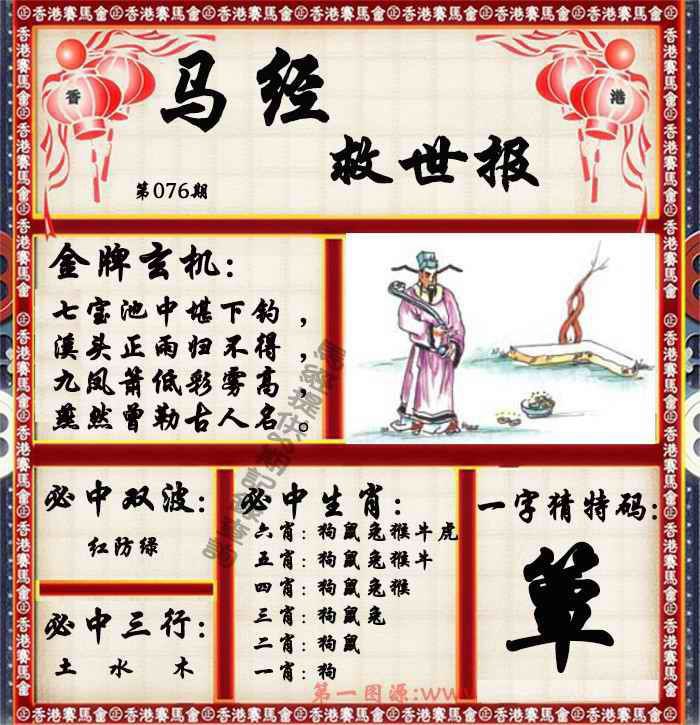 香港賽馬會
香
港
马经
救世报
第076期
金牌玄机：
七宝池中堪下钓，
溪头正雨归不得，
九凤箫低彩雾高，
燕然曾勒古人名。
必中双波：
红防绿
必中三行：
土 水 木
必中生肖：
六肖：狗鼠兔猴牛虎
五肖：狗鼠兔猴牛
四肖：狗鼠兔猴
三肖：狗鼠兔
二肖：狗鼠
一肖：狗
一字猜特码：
第一图源:www